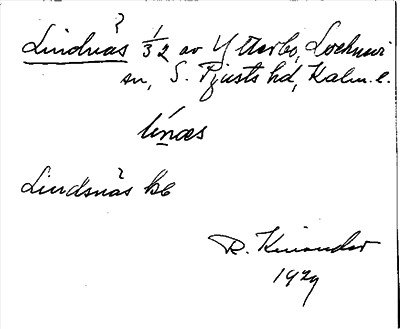 ?
Lindnäs 1/32 av Ytterbo, Locknevi
sn, S. Tjusts hd, Kalm. l.
línæs
Lindsnäs kb
R. Kinander
1929